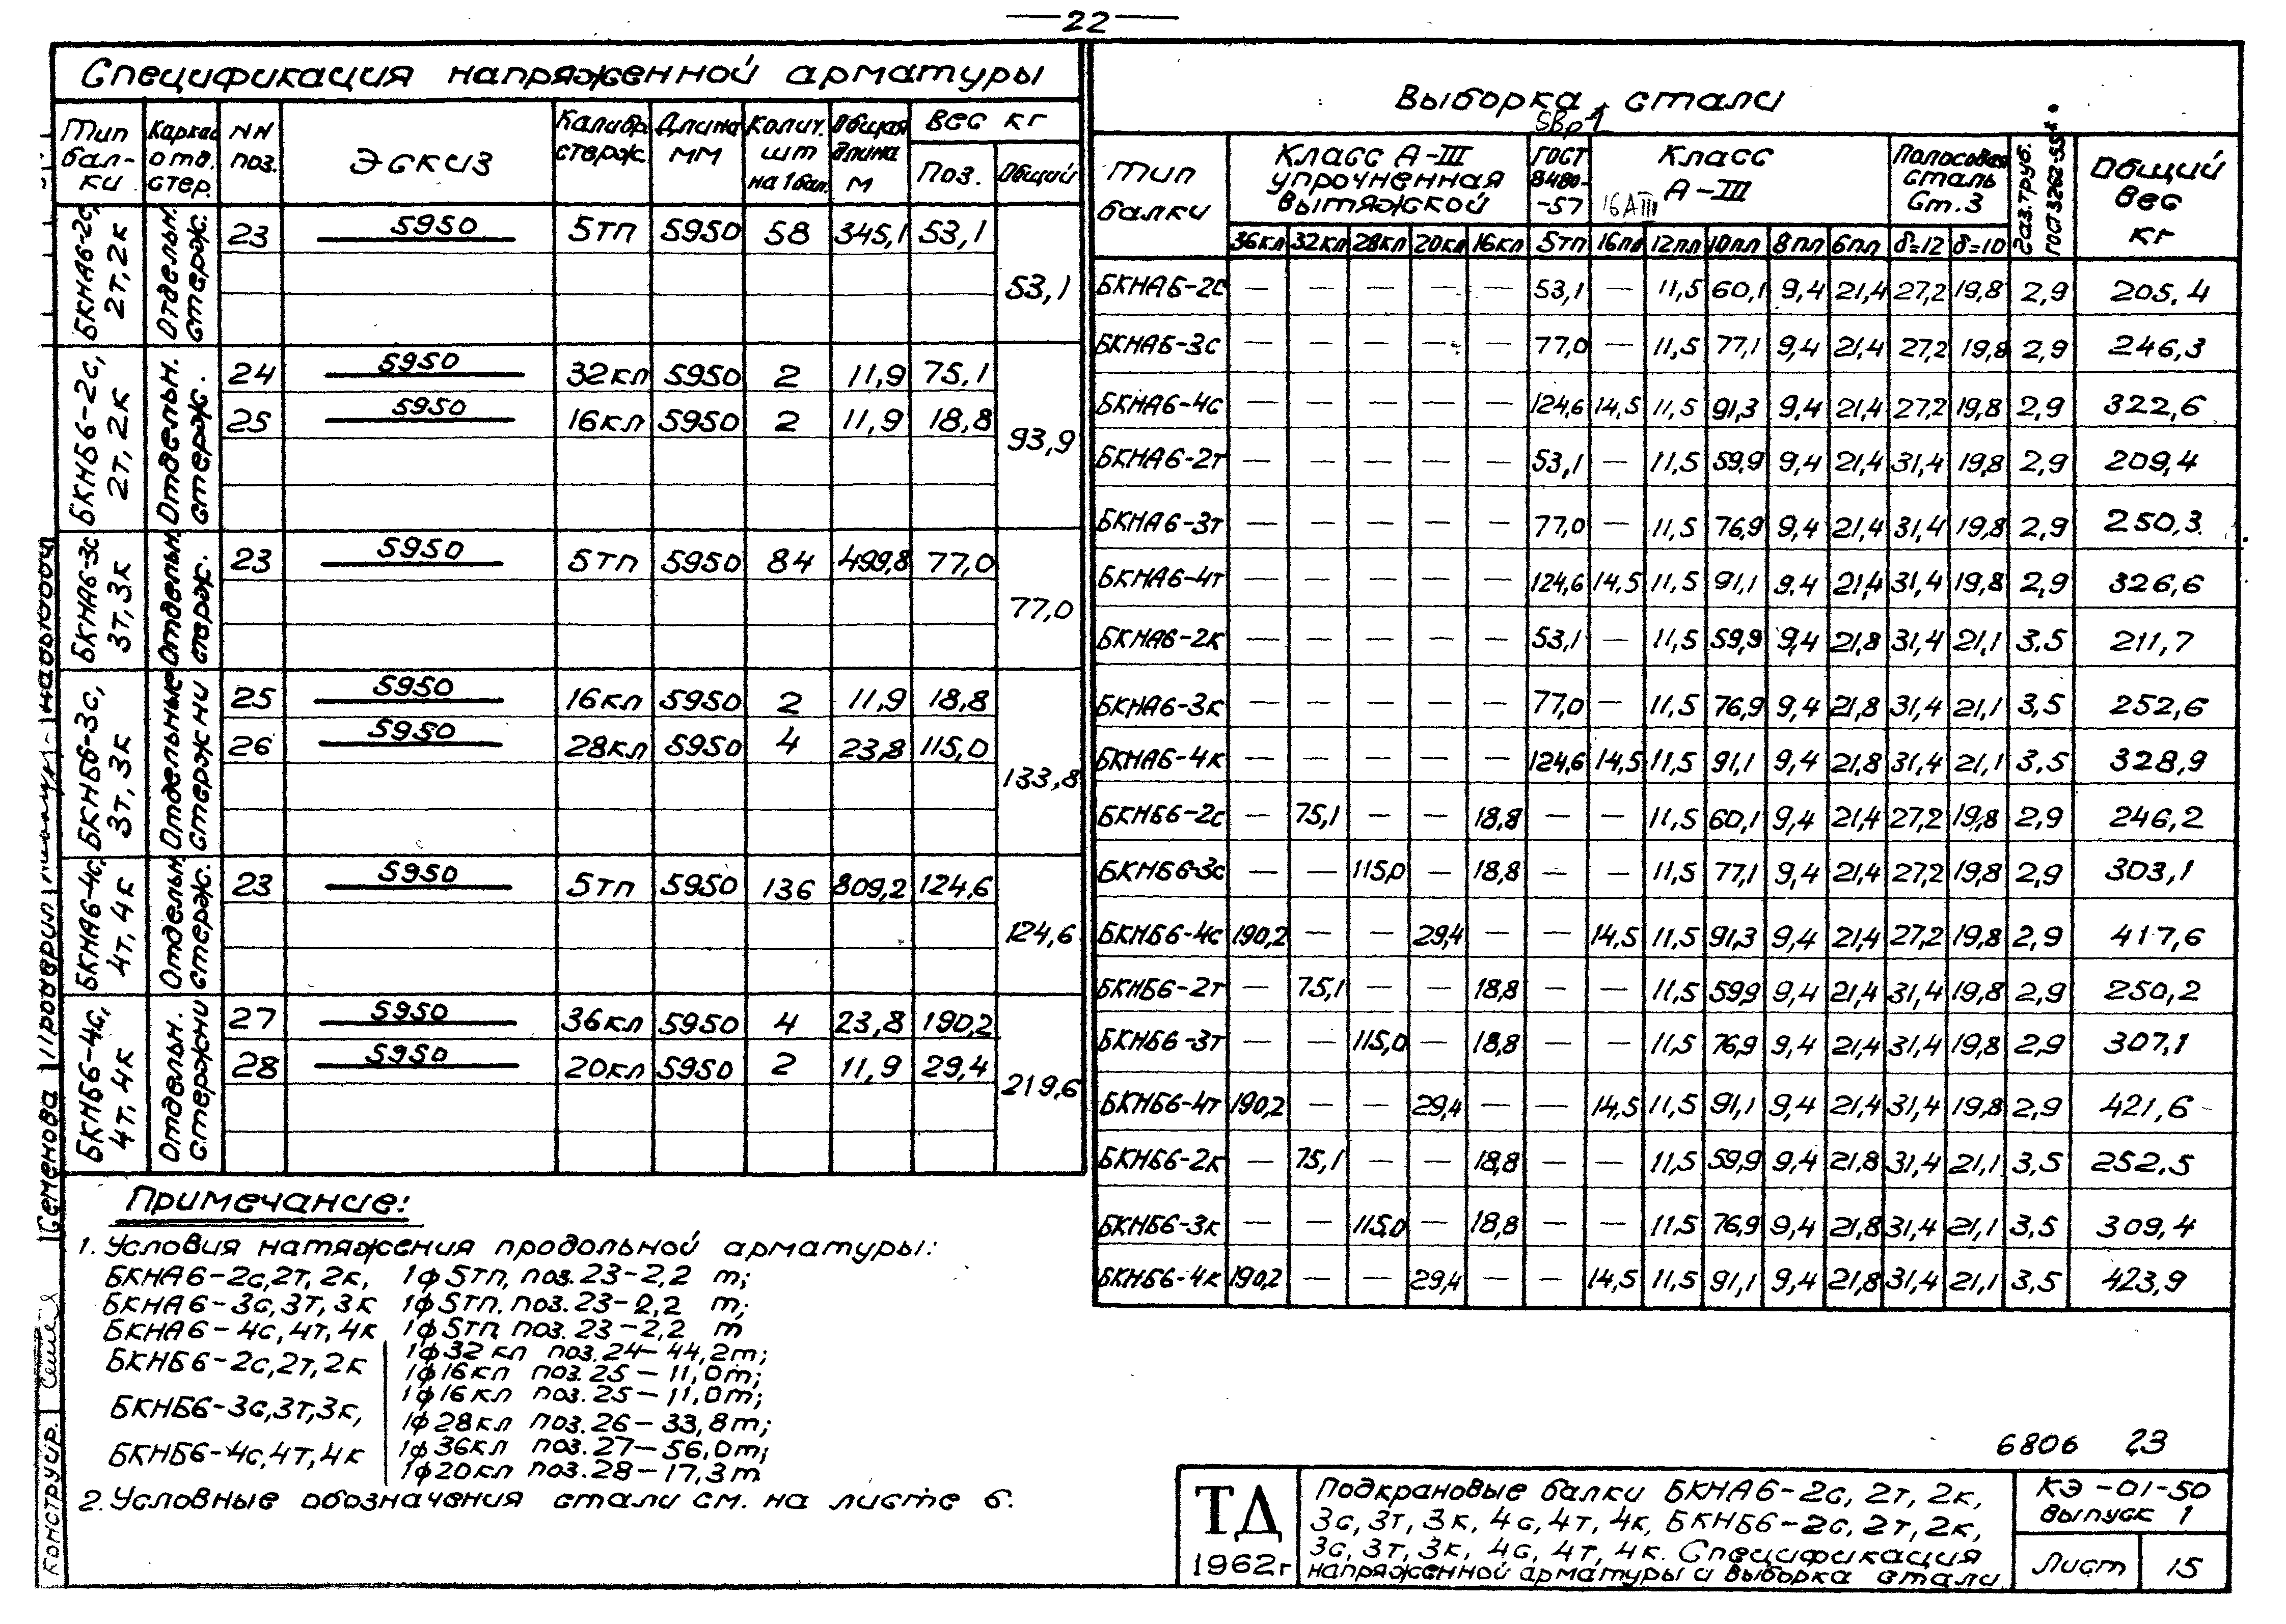 — 22 —
Спецификация напряженной арматуры
Тип бал-ки | Каркас отд. стер. | NN поз. | Эскиз | Калибр стерж. | Длина мм | Колич. шт на 1 бал. | Общая длина м | Вес кг
Поз. | Общий
БКНА6-2с, 2т, 2к | Отдельн. стерж. | 23 | 5950 | 5тп | 5950 | 58 | 345,1 | 53,1 | 53,1
БКНБ6-2с, 2т, 2к | Отдельн. стерж. | 24 | 5950 | 32кл | 5950 | 2 | 11,9 | 75,1 | 93,9
25 | 5950 | 16кл | 5950 | 2 | 11,9 | 18,8
БКНА6-3с 3т, 3к | Отдельн. стерж. | 23 | 5950 | 5тп | 5950 | 84 | 499,8 | 77,0 | 77,0
БКНБ6-3с, 3т, 3к | Отдельные стержни | 25 | 5950 | 16кл | 5950 | 2 | 11,9 | 18,8 | 133,8
26 | 5950 | 28кл | 5950 | 4 | 23,8 | 115,0
БКНА6-4с, 4т, 4к | Отдельн. стерж. | 23 | 5950 | 5тп | 5950 | 136 | 809,2 | 124,6 | 124,6
БКНБ6-4с, 4т, 4к | Отдельн. стержни | 27 | 5950 | 36кл | 5950 | 4 | 23,8 | 190,2 | 219,6
28 | 5950 | 20кл | 5950 | 2 | 11,9 | 29,4
Примечание:
1. Условия натяжения продольной арматуры:
БКНА6-2с,2т,2к, 1ф5тп, поз.23-2,2 т;
БКНА6-3с,3т,3к 1ф5тп, поз.23-2,2 т;
БКНА6-4с,4т,4к 1ф5тп поз.23-2,2 т
БКНБ6-2с,2т,2к 1ф32кл поз.24-44,2т;
1ф16кл поз.25-11,0т;
БКНБ6-3с,3т,3к, 1ф16кл поз.25-11,0т;
1ф28кл поз.26-33,8т;
БКНБ6-4с,4т,4к 1ф36кл поз.27-56,0т;
1ф20кл поз.28-17,3т
2. Условные обозначения стали см. на листе 6.
Выборка стали
5Вр-1
Тип балки | Класс А-III упрочненная вытяжкой | ГОСТ 8480-57 | Класс А-III | Полосовая сталь Ст.3 | Газ. труб. ГОСТ 3262-55* | Общий вес кг
16АIII
36кл | 32кл | 28кл | 20кл | 16кл | 5тп | 16пл | 12пл | 10пл | 8пл | 6пл | δ=12 | δ=10
БКНА6-2с | — | — | — | — | — | 53,1 | — | 11,5 | 60,1 | 9,4 | 21,4 | 27,2 | 19,8 | 2,9 | 205,4
БКНА6-3с | — | — | — | — | — | 77,0 | — | 11,5 | 77,1 | 9,4 | 21,4 | 27,2 | 19,8 | 2,9 | 246,3
БКНА6-4с | — | — | — | — | — | 124,6 | 14,5 | 11,5 | 91,3 | 9,4 | 21,4 | 27,2 | 19,8 | 2,9 | 322,6
БКНА6-2т | — | — | — | — | — | 53,1 | — | 11,5 | 59,9 | 9,4 | 21,4 | 31,4 | 19,8 | 2,9 | 209,4
БКНА6-3т | — | — | — | — | — | 77,0 | — | 11,5 | 76,9 | 9,4 | 21,4 | 31,4 | 19,8 | 2,9 | 250,3
БКНА6-4т | — | — | — | — | — | 124,6 | 14,5 | 11,5 | 91,1 | 9,4 | 21,4 | 31,4 | 19,8 | 2,9 | 326,6
БКНА6-2к | — | — | — | — | — | 53,1 | — | 11,5 | 59,9 | 9,4 | 21,8 | 31,4 | 21,1 | 3,5 | 211,7
БКНА6-3к | — | — | — | — | — | 77,0 | — | 11,5 | 76,9 | 9,4 | 21,8 | 31,4 | 21,1 | 3,5 | 252,6
БКНА6-4к | — | — | — | — | — | 124,6 | 14,5 | 11,5 | 91,1 | 9,4 | 21,8 | 31,4 | 21,1 | 3,5 | 328,9
БКНБ6-2с | — | 75,1 | — | — | 18,8 | — | — | 11,5 | 60,1 | 9,4 | 21,4 | 27,2 | 19,8 | 2,9 | 246,2
БКНБ6-3с | — | — | 115,0 | — | 18,8 | — | — | 11,5 | 77,1 | 9,4 | 21,4 | 27,2 | 19,8 | 2,9 | 303,1
БКНБ6-4с | 190,2 | — | — | 29,4 | — | — | 14,5 | 11,5 | 91,3 | 9,4 | 21,4 | 27,2 | 19,8 | 2,9 | 417,6
БКНБ6-2т | — | 75,1 | — | — | 18,8 | — | — | 11,5 | 59,9 | 9,4 | 21,4 | 31,4 | 19,8 | 2,9 | 250,2
БКНБ6-3т | — | — | 115,0 | — | 18,8 | — | — | 11,5 | 76,9 | 9,4 | 21,4 | 31,4 | 19,8 | 2,9 | 307,1
БКНБ6-4т | 190,2 | — | — | 29,4 | — | — | 14,5 | 11,5 | 91,1 | 9,4 | 21,4 | 31,4 | 19,8 | 2,9 | 421,6
БКНБ6-2к | — | 75,1 | — | — | 18,8 | — | — | 11,5 | 59,9 | 9,4 | 21,8 | 31,4 | 21,1 | 3,5 | 252,5
БКНБ6-3к | — | — | 115,0 | — | 18,8 | — | — | 11,5 | 76,9 | 9,4 | 21,8 | 31,4 | 21,1 | 3,5 | 309,4
БКНБ6-4к | 190,2 | — | — | 29,4 | — | — | 14,5 | 11,5 | 91,1 | 9,4 | 21,8 | 31,4 | 21,1 | 3,5 | 423,9
6806 23
ТД
1962г
Подкрановые балки БКНА6-2с, 2т, 2к,
3с, 3т, 3к, 4с, 4т, 4к, БКНБ6-2с, 2т, 2к,
3с, 3т, 3к, 4с, 4т, 4к. Спецификация
напряженной арматуры и выборка стали.
КЭ-01-50
Выпуск 1
Лист 15
Конструир. Семенова Проверил